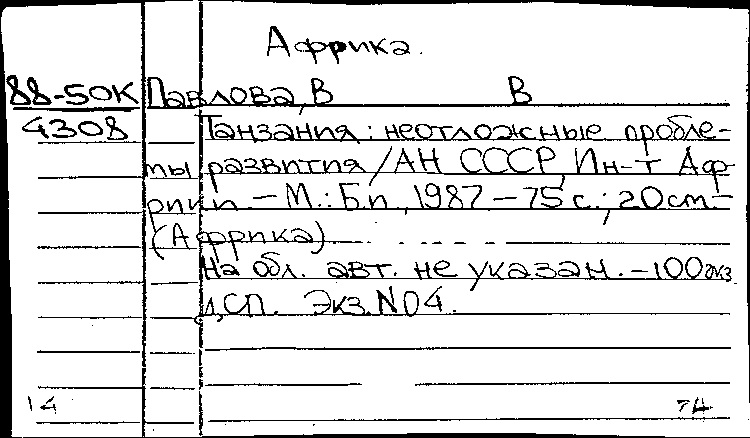 Африка.
88-50К Павлова, В В
4308 Танзания: неотложные пробле-
мы развития / АН СССР, Ин-т Аф-
рики. – М.: Б.и., 1987 – 75 с.; 20 см. –
(Африка)
На обл. авт. не указан. – 100 экз
ДСП. Экз. N04.
14